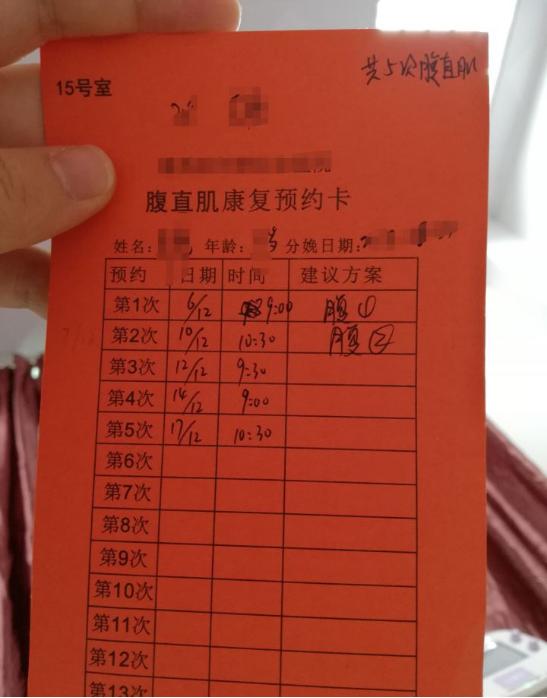 共5次腹直肌
15号室
腹直肌康复预约卡
姓名: 年龄: 岁 分娩日期:
预约 日期 时间 建议方案
第1次 6/12 9:00 腹①
第2次 10/12 10:30 腹②
第3次 12/12 9:30
第4次 14/12 9:00
第5次 17/12 10:30
第6次
第7次
第8次
第9次
第10次
第11次
第12次
第13次